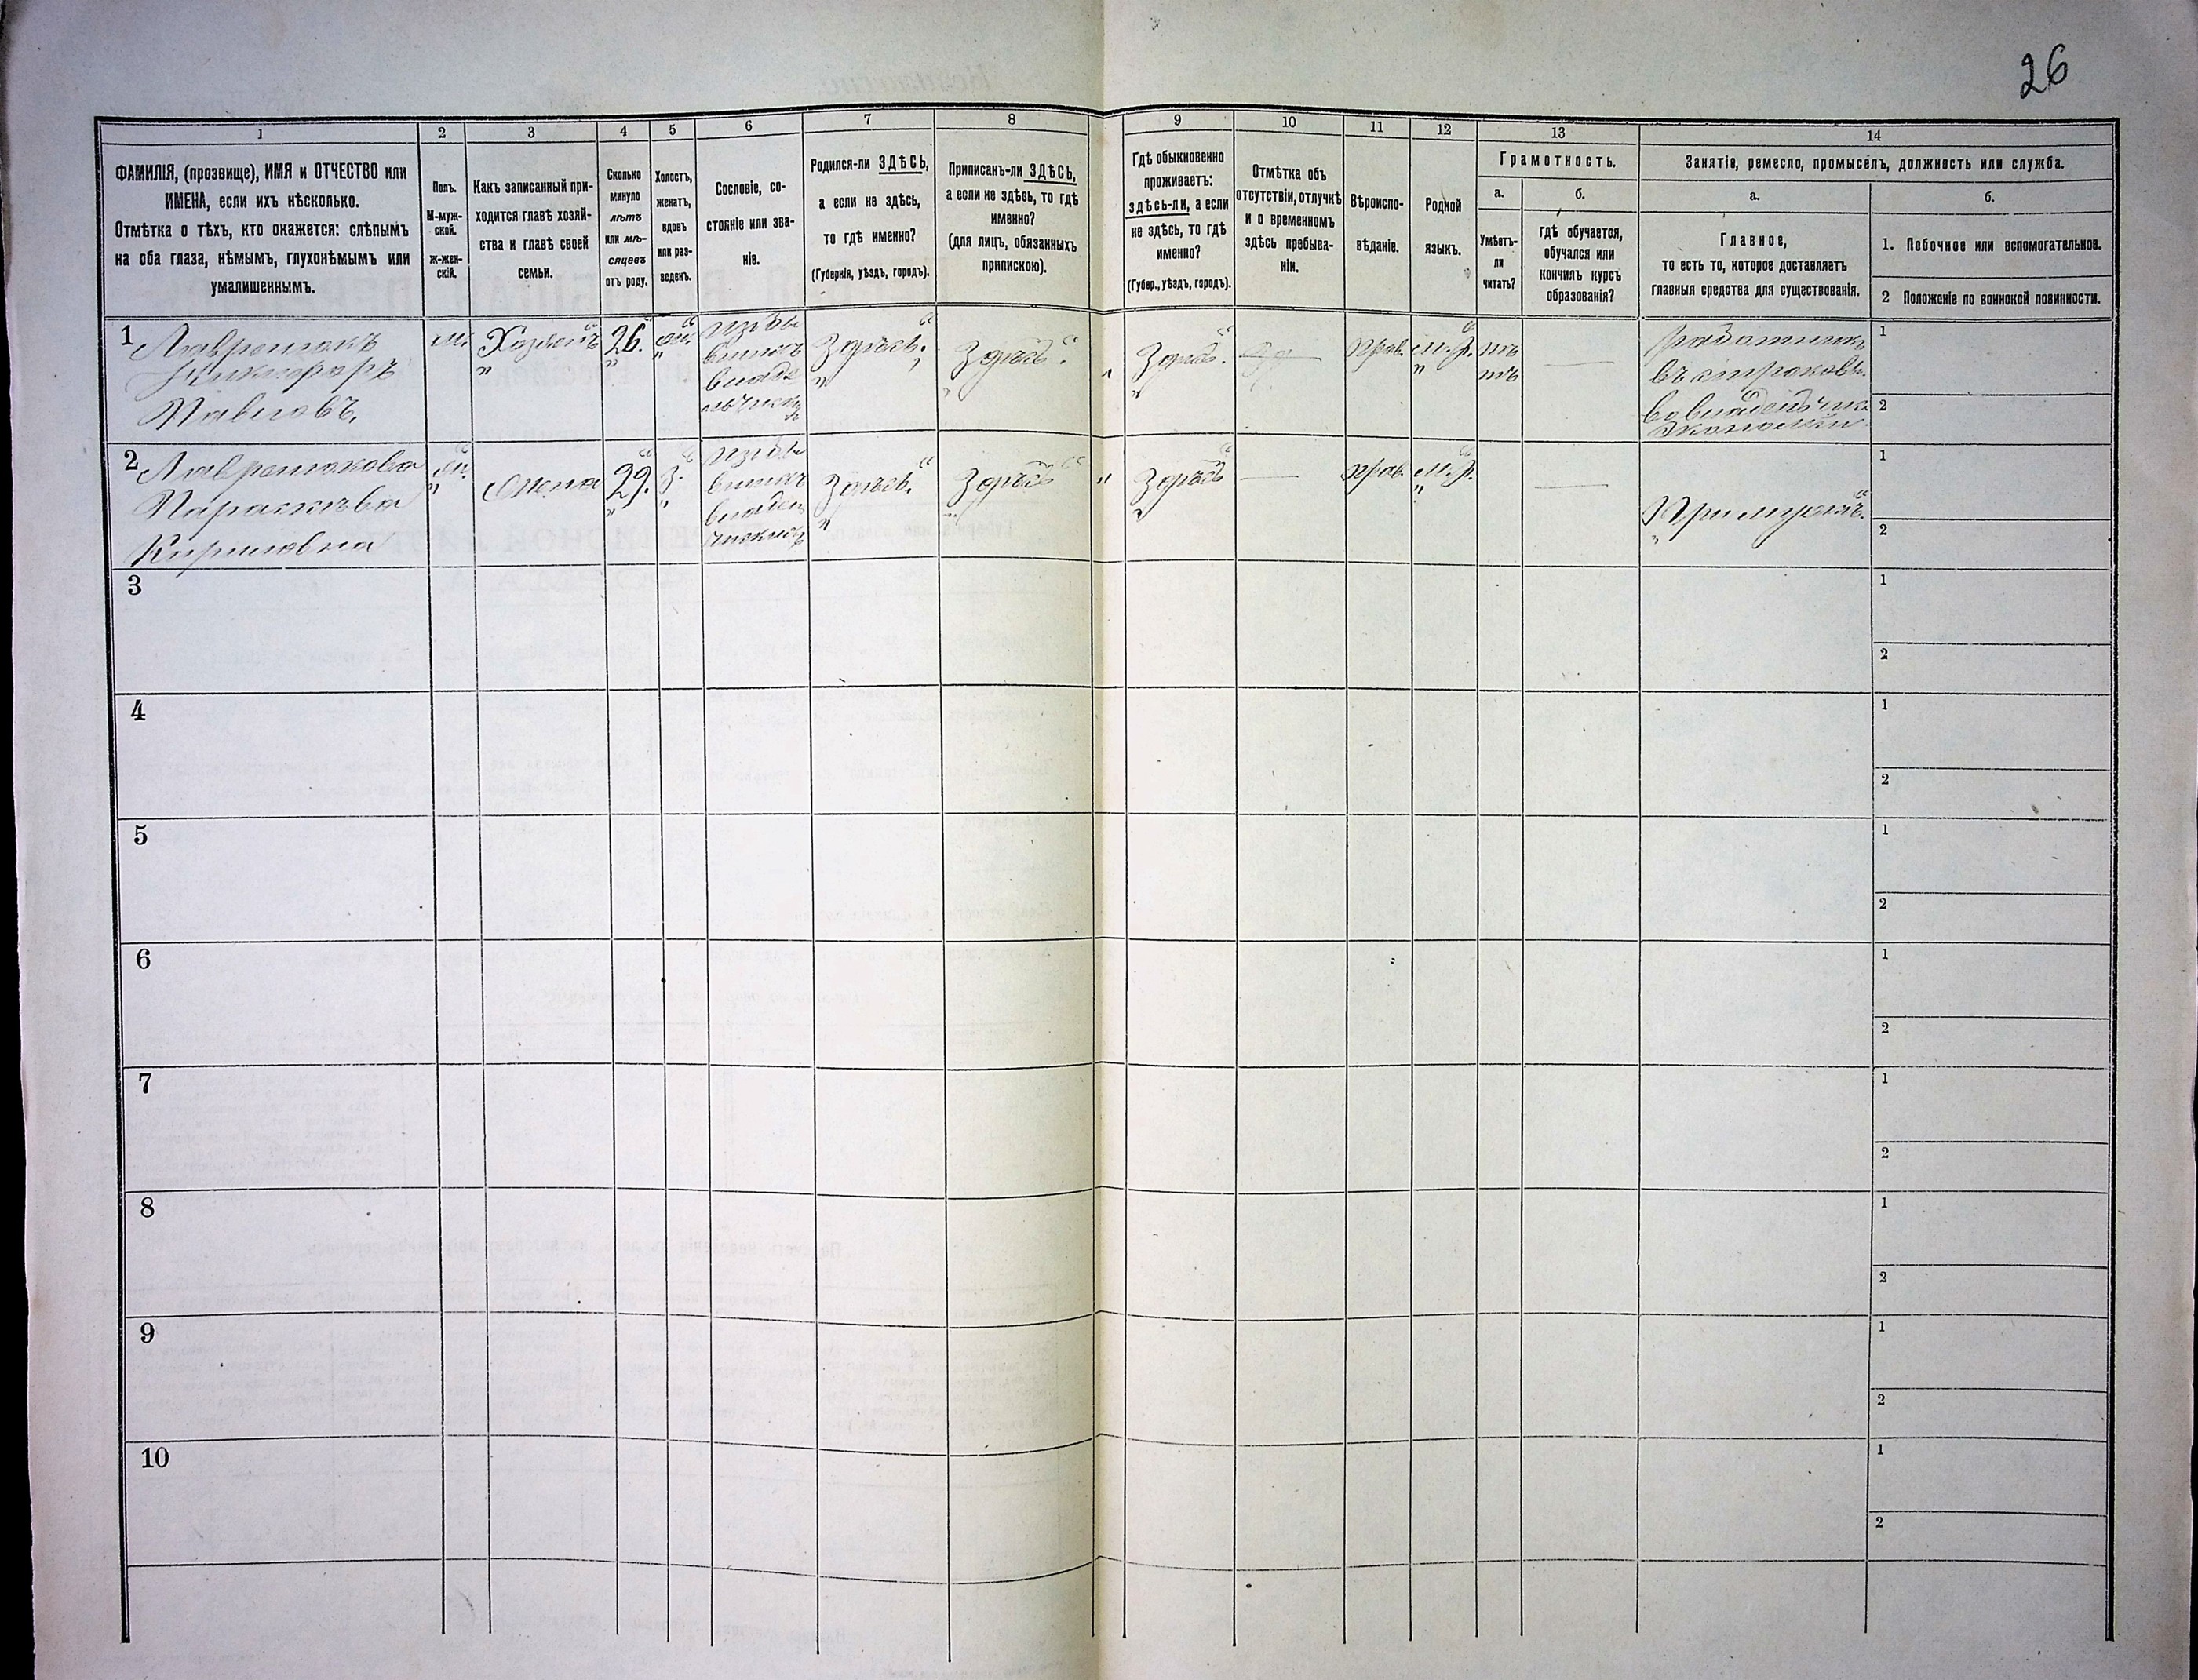 26
1
2
3
4
5
6
7
8
9
10
11
12
13
14
ФАМИЛІЯ, (прозвище), ИМЯ и ОТЧЕСТВО или
ИМЕНА, если ихъ нѣсколько.
Отмѣтка о тѣхъ, кто окажется: слѣпымъ
на оба глаза, нѣмымъ, глухонѣмымъ или
умалишеннымъ.
Полъ.
М-муж-
ской.
Ж-жен-
скій.
Какъ записанный при-
ходится главѣ хозяй-
ства и главѣ своей
семьи.
Сколько
минуло
лѣтъ
или мѣ-
сяцевъ
отъ роду.
Холостъ,
женатъ,
вдовъ
или раз-
веденъ.
Сословіе, со-
стояніе или зва-
ніе.
Родился-ли ЗДѢСЬ,
а если не здѣсь,
то гдѣ именно?
(Губернія, уѣздъ, городъ).
Приписанъ-ли ЗДѢСЬ,
а если не здѣсь, то гдѣ
именно?
(для лицъ, обязанныхъ
припискою).
Гдѣ обыкновенно
проживаетъ:
здѣсь-ли, а если
не здѣсь, то гдѣ
именно?
(Губер., уѣздъ, городъ).
Отмѣтка объ
отсутствіи, отлучкѣ
и о временномъ
здѣсь пребыва-
ніи.
Вѣроиспо-
вѣданіе.
Родной
языкъ.
Грамотность.
а.
Умѣетъ-
ли
читать?
б.
гдѣ обучается,
обучался или
кончилъ курсъ
образованія?
Занятіе, ремесло, промыселъ, должность или служба.
а.
Главное,
то есть то, которое доставляетъ
главныя средства для существованія.
б.
1. Побочное или вспомогательное.
2 Положеніе по воинской повинности.
1
Никифоръ
Павловъ.
м.
Хозяинъ
26.
Здѣсь.
Здѣсь
Здѣсь.
Прав.
М. Р.
1
2
2
Параскева
Кириловна
жена
29.
Здѣсь.
Здѣсь
Здѣсь
Прав.
М. Р.
При мужѣ.
1
2
3
1
2
4
1
2
5
1
2
6
1
2
7
1
2
8
1
2
9
1
2
10
1
2